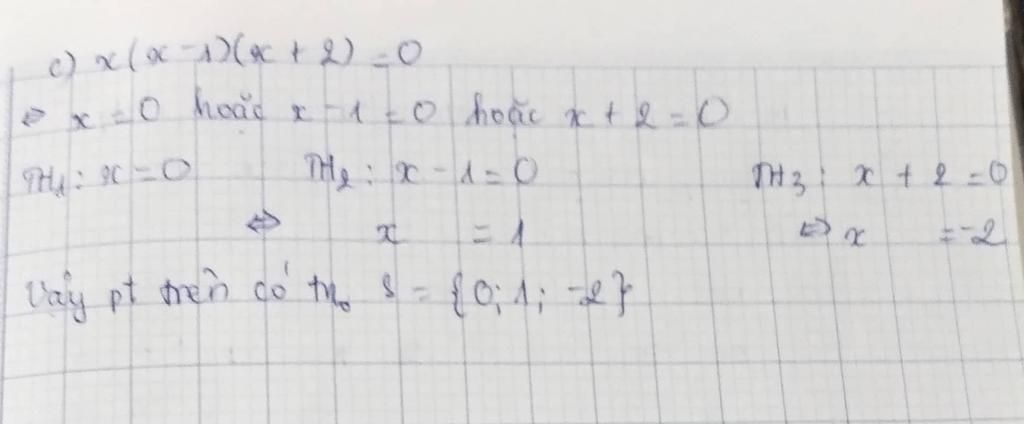 c) x(x-1)(x+2)=0
⇔ x=0 hoặc x-1=0 hoặc x+2=0
TH1: x=0 TH2: x-1=0 TH3: x+2=0
⇔ x =1 ⇔ x =-2
Vậy pt trên có tn0 S={0;1;-2}